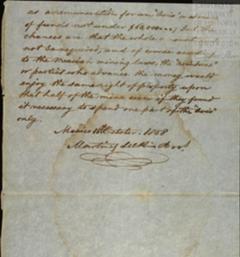 as a remuneration for an "avio" a advance
of funds not under $60.000, but the
chances are that the whole
not be required, and of course
to the Mexican mining laws, the
or parties who advance the money would
enjoy the same right of property upon
that half of the mine even if they found
it necessary to spend one part of the "avio"
only.
Mexico October 1858